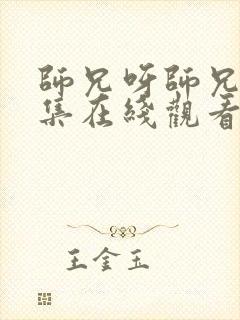 師兄呀師兄
集在綫觀看
王金玉